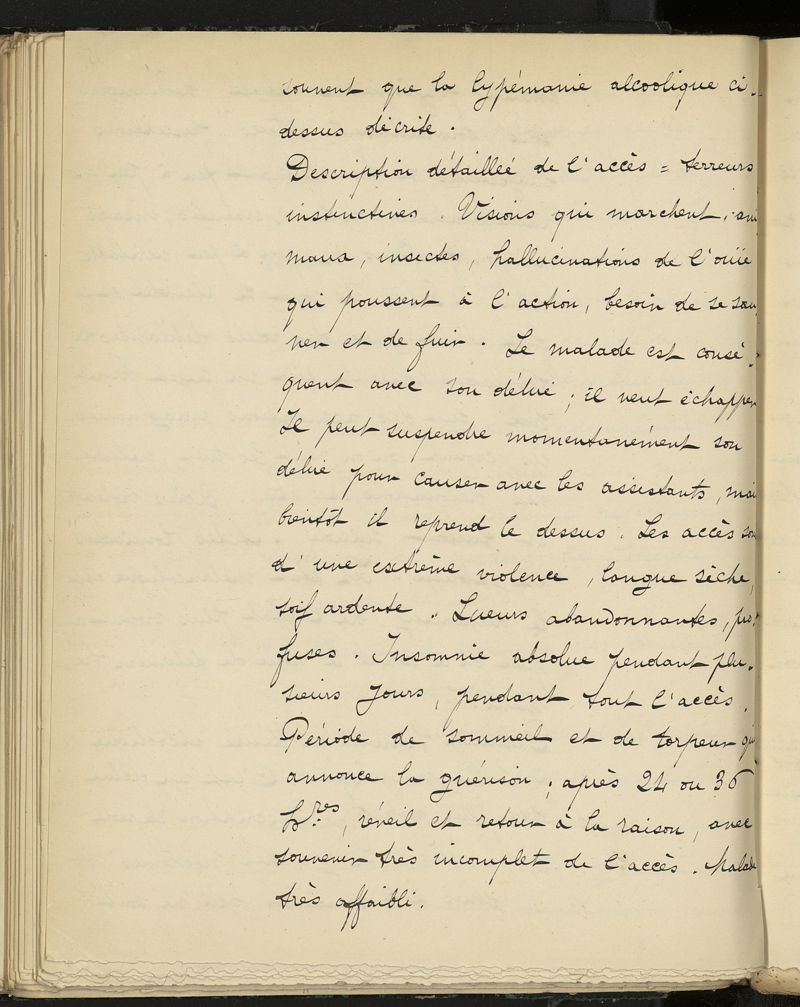 souvent que la lypémanie alcoolique ci-
dessus décrite.
Description détailleé de l'accès = terreurs
instinctives. Visions qui marchent, ani
maux, insectes, hallucinations de l'ouïe
qui poussent à l'action, besoin de se sau
ver et de fuir. Le malade est consé-
quent avec son délire ; il veut échapper
Il peut suspendre momentanément son
délire pour causer avec les assistants, mai
bientôt il reprend le dessus. Les accès son
d'une extrême violence, langue sèche,
soif ardente. Sueurs abondonnantes, pro
fuses. Insomnie absolue pendant plu-
sieurs jours, pendant tout l'accès.
Période de sommeil et de torpeur qui
annonce la guérison ; après 24 ou 36
h.res, réveil et retour à la raison, avec
souvenir très incomplet de l'accès. Malade
très affaibli.